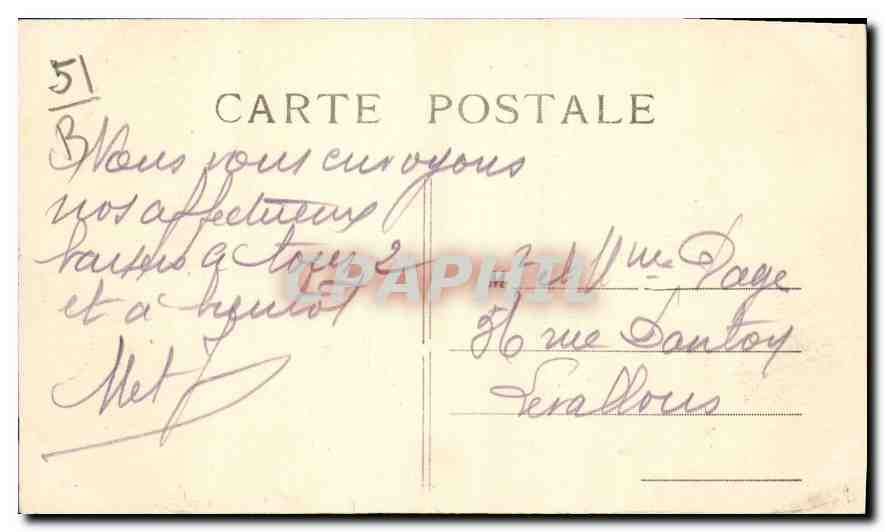 51
B
CARTE POSTALE
Nous vous envoyons
nos affectueux
baisers à tous 2
et à bientôt
CPAPHIL
M et Mme Page
56 rue Danton
Levallois